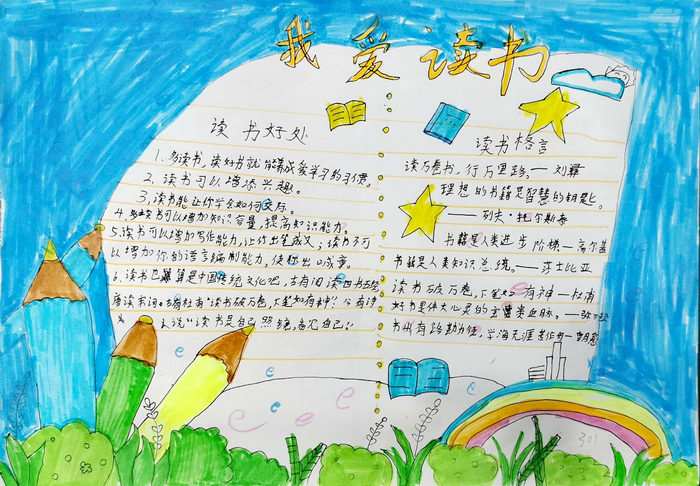 我爱读书
读书好处
1.多读书,读好书就能养成爱学习的习惯。
2.读书可以增添兴趣。
3,读书能让你学会如何交际。
4.多读书可以增加知识容量,提高知识能力。
5.读书可以增加写作能力,让你出笔成文;读书不可
以增加你的语言编制能力,使你出口成章。
6.读书已算是中国传统文化吧,古有阅读四书五经
唐读宋词。古有杜甫“读书破万卷,下笔如有神”今有诗
人说“读书是自己
读书格言
读万卷书,行万里路。—刘彝
理想的书籍是智慧的钥匙。
——列夫·托尔斯泰
书籍是人类进步阶梯—高尔基
书籍是人类知识总统。—莎士比亚
读书破万卷,下笔如有神—杜甫
好书是伟大心灵的血脉。
书山有路勤为径,学海无涯苦作舟—
301